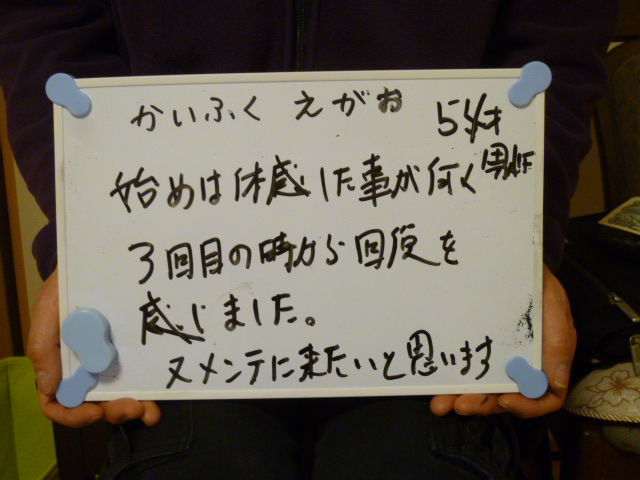 かいふく えがお 54才
男性
始めは体感した事が何く
3回目の時から回復を
感じました。
又メンテに来たいと思います